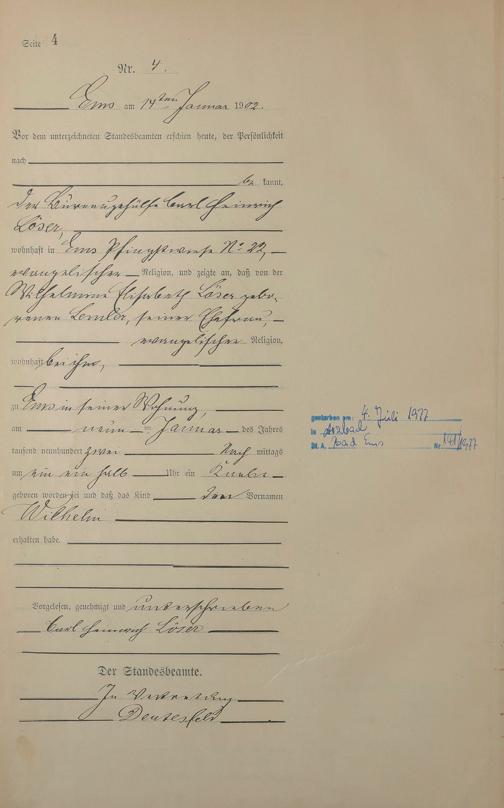 Seite 4
Nr. 4.
Ems am 14ten Januar 1902.
Vor dem unterzeichneten Standesbeamten erschien heute, der Persönlichkeit
nach
be kannt,
der Bureaugehülfe Carl Heinrich
Löser,
wohnhaft in Ems Pfingstwiese No 22,
evangelischer Religion, und zeigte an, daß von der
Wilhelmine Elisabeth Löser gebo-
renen, seiner Ehefrau,
evangelischer Religion,
wohnhaft bei ihm,
zu Ems in seiner Wohnung,
am neun ten Januar des Jahres
tausend neunhundert zwei Nach mittags
um ein ein halb Uhr ein Knabe
geboren worden sei und daß das Kind den Vornamen
Wilhelm
erhalten habe.
Vorgelesen, genehmigt und unterschrieben
Carl Heinrich Löser
Der Standesbeamte.
In Vertretung
gestorben am: 4. Juli 1977
in Arzbach
St. A. Bad Ems Nr. 141/1977